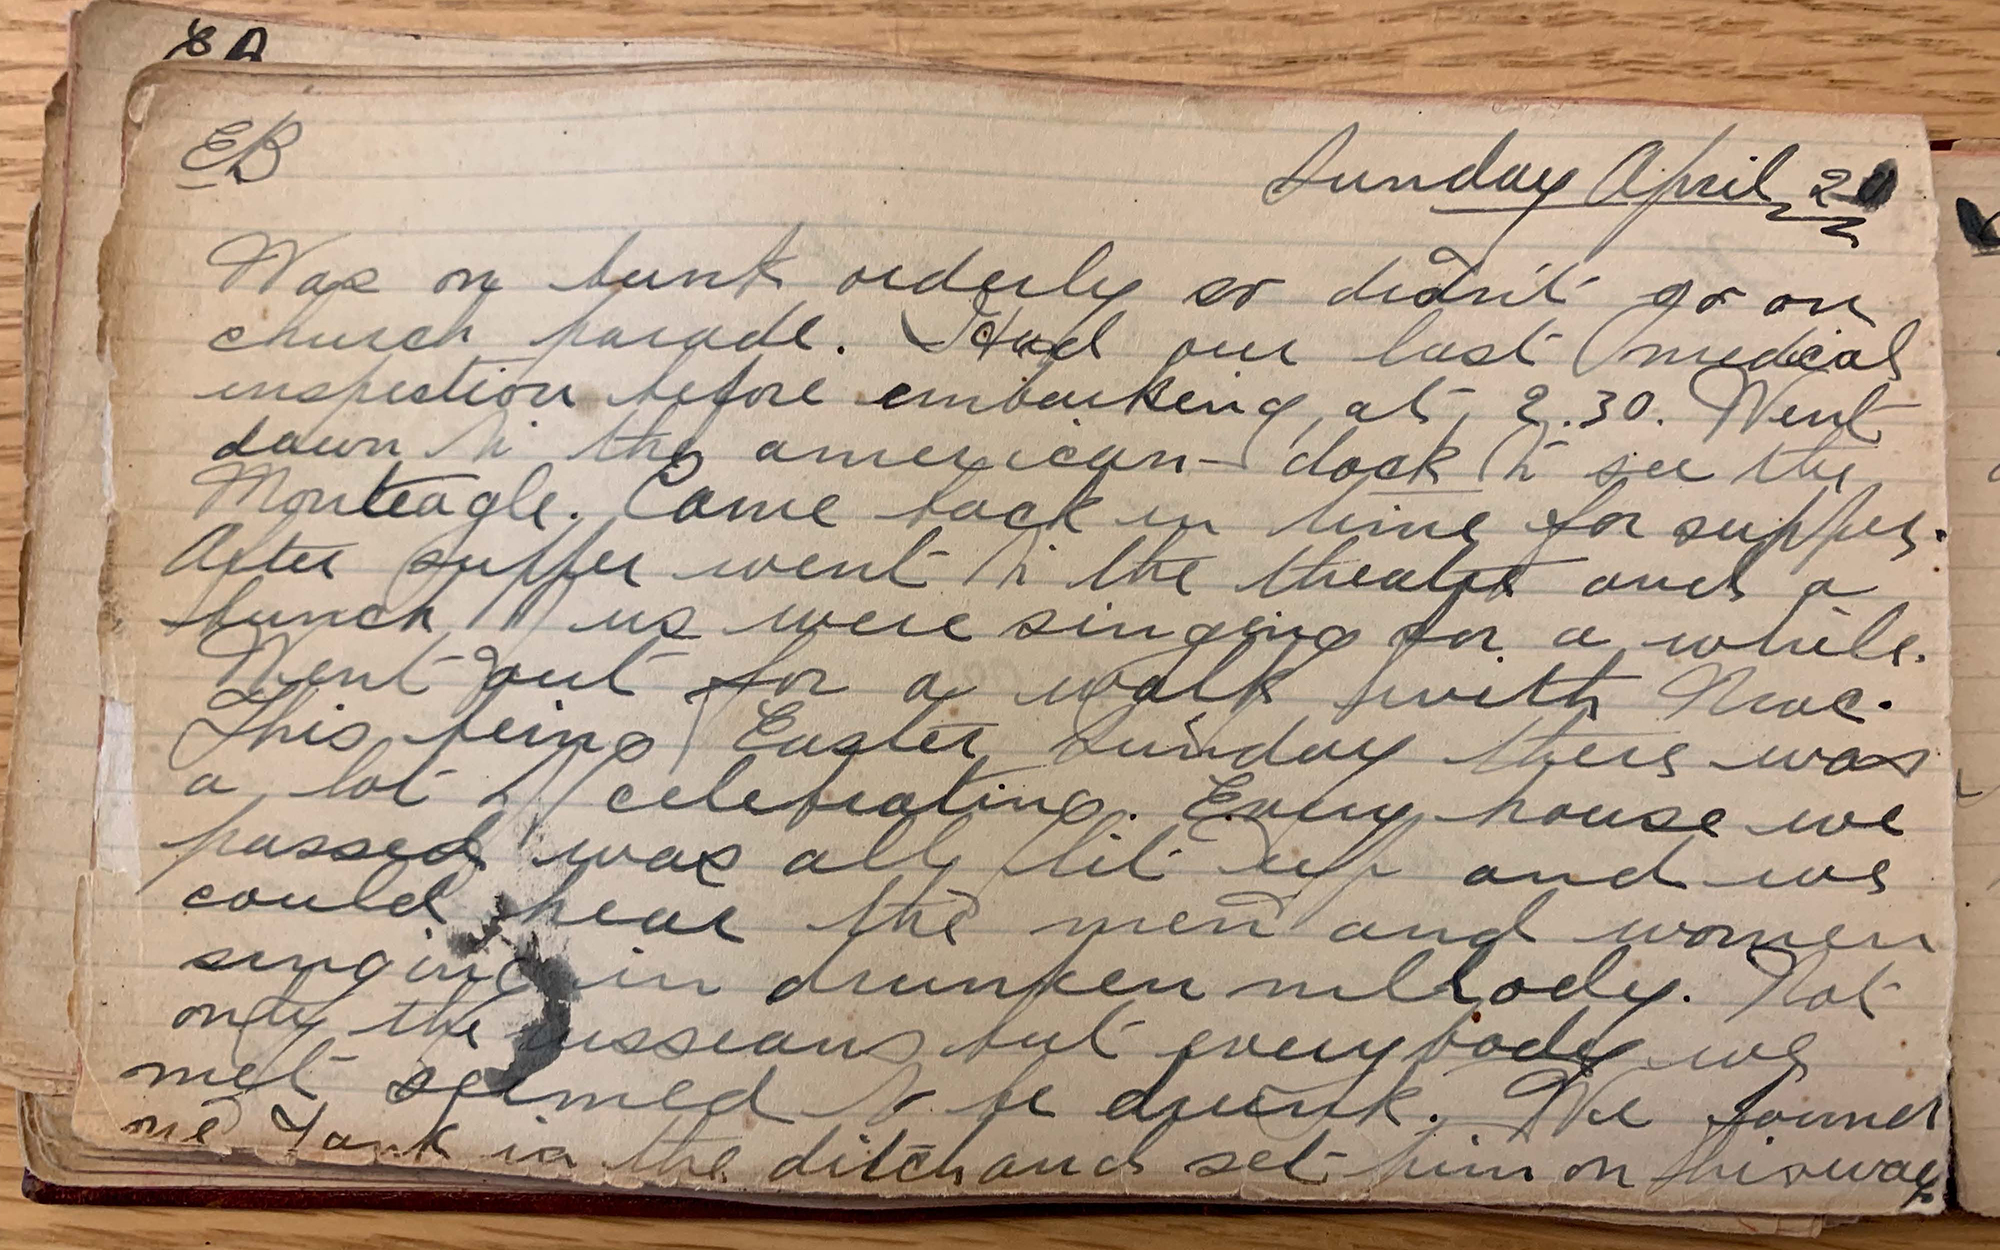 EB
EB
Sunday April 20
Was on bunk orderly so didn't go on
church parade. Had our last medical
inspection before embarking at 2.30. Went
down to the american dock to see the
Monteagle. Came back in time for supper.
After supper went to the theatre and a
bunch of us were singing for a while.
Went out for a walk with Mac.
This being Easter Sunday there was
a lot of celebrating. Every house we
passed was all lit up and we
could hear the men and women
singing in drunken mellody. Not
only the russians but everybody we
met seemed to be drunk. We found
one Yank in the ditch and set him on his way